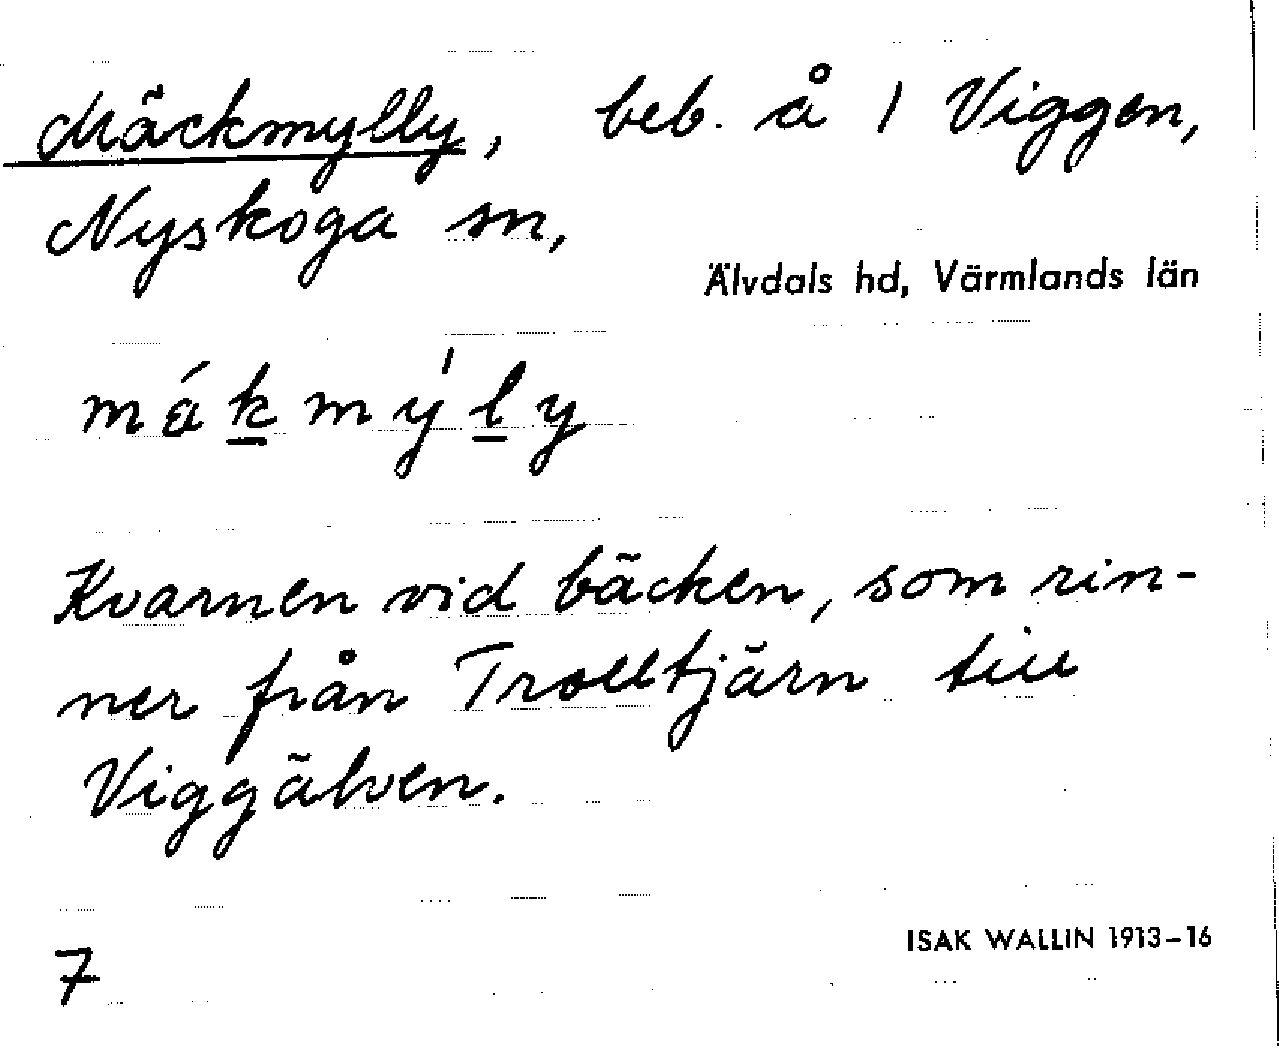 Mäckmylly, beb. å 1 Viggen,
Nyskoga sn,
Älvdals hd, Värmlands län
mákmýly
Kvarnen vid bäcken, som rin-
ner från Trolltjärn till
Viggälven.
7
ISAK WALLIN 1913-16